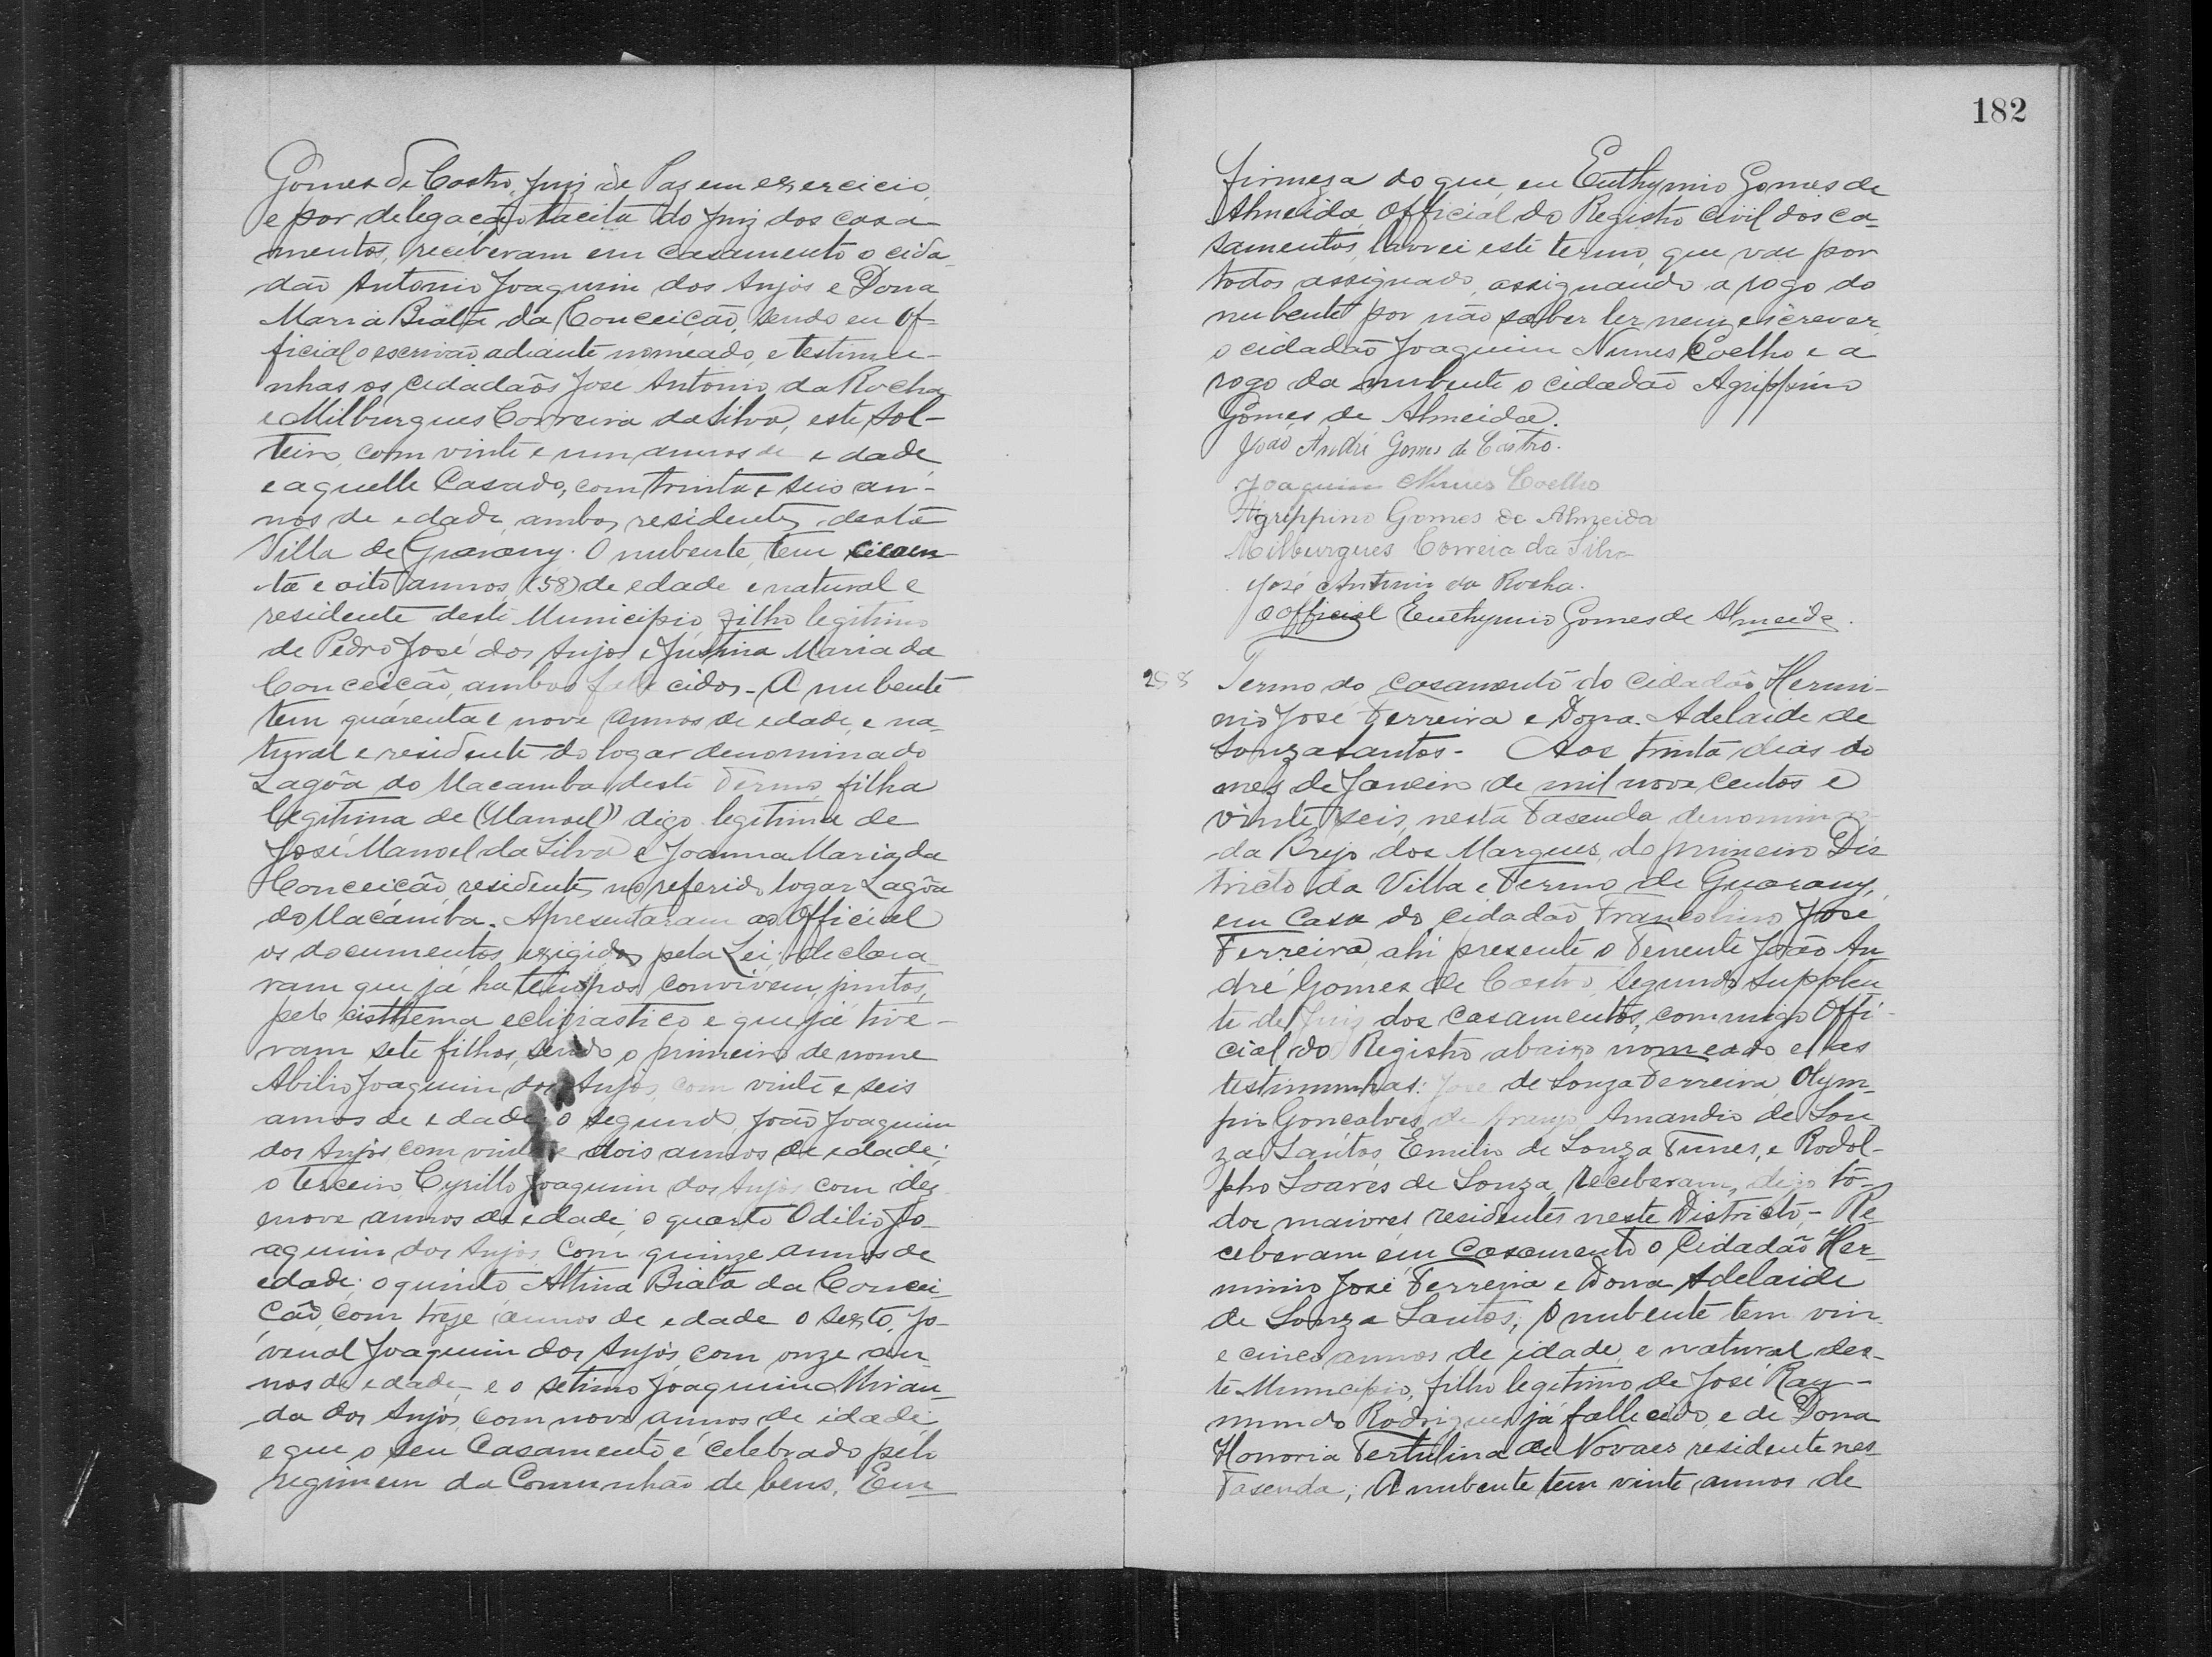 Gomes de Castro, Juiz de Paz em exercicio,
e por delegação tacita do Juiz dos casa
mentos, receberam em casamento o cida
dão Antonio Joaquim dos Anjos e Dona
Maria Biata da Conceição, sendo eu Of-
ficial o escrivão adiante nomeado, e testimu-
nhas os cidadãos José Antonio da Rocha
e Milburgues Correira da Silva, este sol-
teiro, com vinte e um annos de edade
e aquelle Casado, com trinta e seis an-
nos de edade, ambos residentes desta
Villa de Guarany. O nubente tem cicoen-
ta e oito annos, (58) de edade e natural e
residente deste Municipio, filho legitimo
de Pedro José dos Anjos e Justina Maria da
Conceição, ambos fallecidos - A nubente
tem quarenta e nove annos de edade, e na-
tural e residente do logar denominado
Lagôa do Macamba, deste Termo, filha
legitima de (Manoel) digo legitima de
José Manoel da Silva e Joanna Maria da
Conceição, residentes no referido logar Lagôa
do Macámba. Apresentaram ao Official
os documentos exigidos pela Lei; declara-
ram que já ha tempos convivem juntos,
pelo cisthema eclisiastico e que já tive-
ram sete filhos, sendo o primeiro de nome
Abilio Joaquim dos Anjos, com vinte e seis
annos de edade; o segundo João Joaquim
dos Anjos, com vinte e dois annos de edade;
o terceiro, Cyrillo Joaquim dos Anjos com dez
enove annos de edade; o quarto Odilio Jo-
aquim dos Anjos com quinze annos de
edade; o quinto Altina Biata da Concei-
ção, com treze annos de edade o sexto, Jo-
venal Joaquim dos Anjos, com onze an-
nos de edade, e o setimo Joaquim Miran-
da dos Anjos com nove annos de idade,
e que o seu Casamento é celebrado pelo
regimem da Comunhão de bens. Em
182
firmeza do que, eu Euthymio Gomes de
Almeida, Official do Registro Civil dos ca-
samentos, lavrei este termo, que vae por
todos assignado, assignando a rogo do
nubente por não saber ler nem escrever
o cidadão Joaquim Nunes Coelho e a
rogo da nubente o cidadão Agrippino
Gomes de Almeida.
João André Gomes de Castro.
Joaquim Nunes Coelho
Agrippino Gomes de Almeida
Milburgues Correia da Silva
José Antonio da Rocha.
O official Euthymio Gomes de Almeida.
258 Termo do casamento do cidadão Hermi-
nio José Ferreira e Dona Adelaide de
Souza Santos - Aos trinta dias do
mez de Janeiro de mil nove centos e
vinte seis, nesta Fasenda denomina-
da Brejo dos Marques, do primeiro Dis
tricto da Villa e Termo de Guarany,
em casa do cidadão Francolino José
Ferreira, ahi presente o Tenente João An
dré Gomes de Castro, segundo supplen
te de Juiz dos casamentos, commigo Offi-
cial do Registro abaixo nomeado e as
testimunhas: José de Souza Ferreira, Olym-
pio Gonçalves de Araujo, Amandio de Sou
za Santos, Emilio de Souza Funes, e Rodol-
pho Soares de Souza, receberam, digo to-
dos maiores residentes neste Districto - Re
ceberam em Casamento o Cidadão Her-
minio José Ferreira e Dona Adelaide
de Souza Santos; O nubente tem vin
e cinco annos de idade, e natural des-
te Municipio, filho legitimo de José Ray-
mundo Rodrigues já fallecido, e de Dona
Honoria Tertulina de Novaes residente nes
Fasenda; A nubente tem vinte annos de